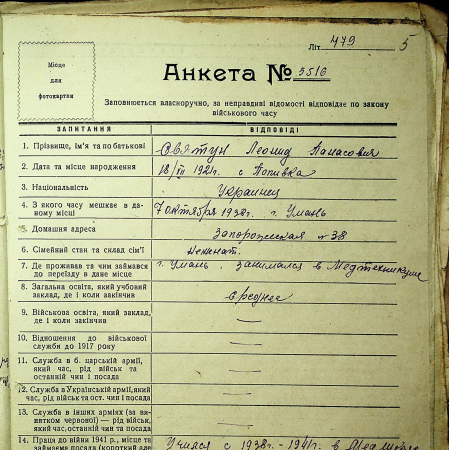 Літ. 479 5
Місце
для
фотокартки
Анкета № 5516
Заповнюється власноручно, за неправдиві відомості відповідає по закону
військового часу
ЗАПИТАННЯ ВІДПОВІДІ
1. Прізвище, ім'я та по батькові Святун Леонид Панасович
2. Дата та місце народження 18/III 1921 г. с. Попивка
3. Національність Украинец
4. З якого часу мешкає в даному місці 7 октября 1938 г. г. Умань
5. Домашня адреса Запорожская № 38
6. Сімейний стан та склад сім'ї Неженат.
7. Де проживав та чим займався
до переїзду в дане місто г. Умань, занимался в Медтехникуме
8. Загальна освіта, який учбовий
заклад, де і коли закінчив Среднее
9. Військова освіта, який заклад,
де і коли закінчив —
10. Відношення до військової
служби до 1917 року —
11. Служба в б. царській армії,
який час, рід військ та
останній чин і посада —
12. Служба в Українській армії, який
час, рід військ та ост. чин і посада —
13. Служба в інших арміях (за винятком
червоної) — рід військ,
який час, останній чин та посада —
14. Праця до війни 1941 р., місце та
займаєма посада (короткий Учился с 1938г-1941г. в